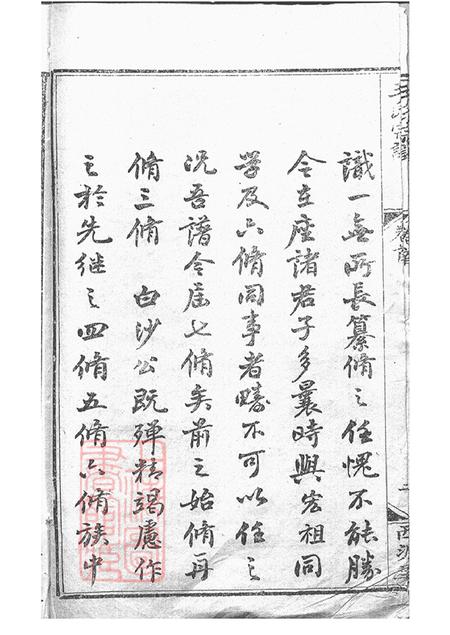 識一無所長纂脩之任愧不能勝
今在座諸君子多曩時與宏祖同
學及六脩同事者疇不可以任之
況吾譜今屆七脩矣前之始脩再
脩三脩 白沙公既殫精竭慮作
之於先继之四脩五脩六脩族中